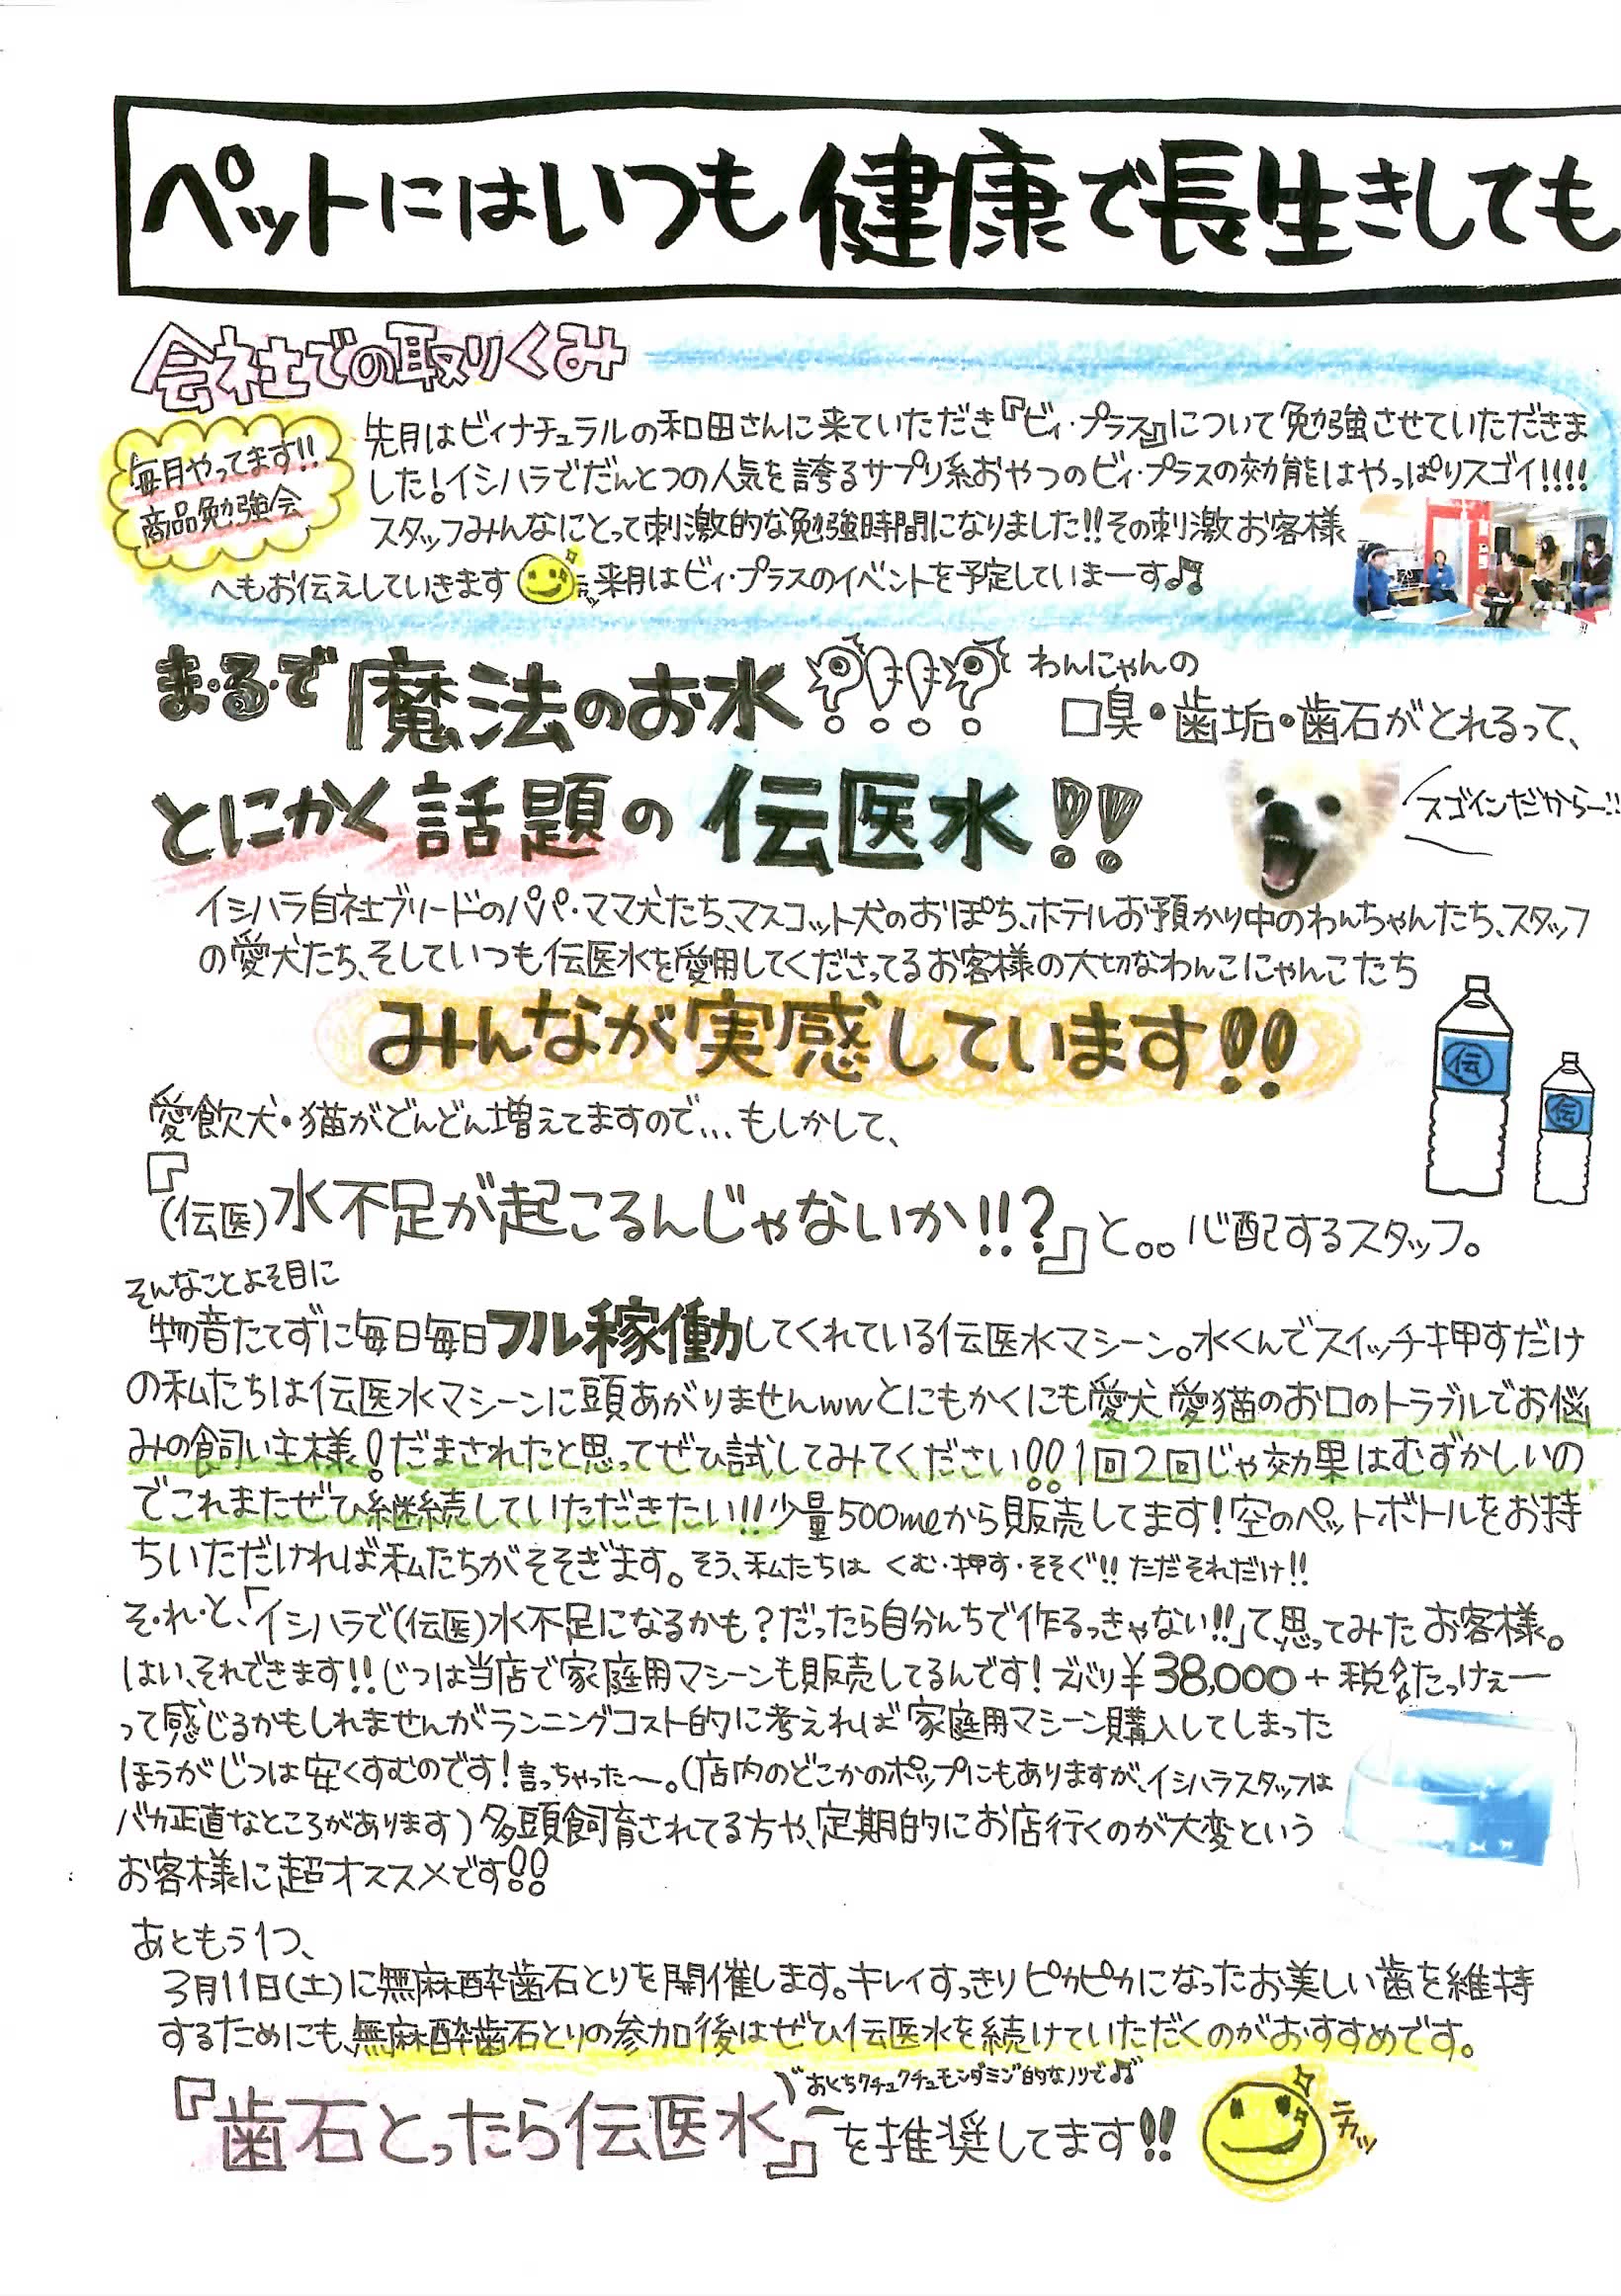 ペットにはいつも健康で長生きしても
会社での取りくみ
毎月やってます!!
商品勉強会
先月はビィナチュラルの和田さんに来ていただき『ビィ・プラス』について勉強させていただきま
した!イシハラでだんとつの人気を誇るサプリ系おやつのビィ・プラスの効能はやっぱりスゴイ!!!!
スタッフみんなにとって刺激的な勉強時間になりました!!その刺激お客様
へもお伝えしていきます 来月はビィ・プラスのイベントを予定していまーす♪
ま・る・で魔法のお水?!!?
わんにゃんの
口臭・歯垢・歯石がとれるって、
とにかく話題の伝医水!!
スゴインだから〜!!
イシハラ自社ブリードのパパ・ママ犬たち、マスコット犬のおぽち、ホテルお預かり中のわんちゃんたち、スタッフ
の愛犬たち、そしていつも伝医水を愛用してくださってるお客様の大切なわんこにゃんこたち
みんなが実感しています!!
伝
伝
愛飲犬・猫がどんどん増えてますので...もしかして、
『(伝医)水不足が起こるんじゃないか!!?』と。。心配するスタッフ。
そんなことよそ目に
物音たてずに毎日毎日フル稼働してくれている伝医水マシーン。水くんでスイッチ押すだけ
の私たちは伝医水マシーンに頭あがりませんwwとにもかくにも愛犬愛猫のお口のトラブルでお悩
みの飼い主様!だまされたと思ってぜひ試してみてください!!1回2回じゃ効果はむずかしいの
でこれまたぜひ継続していただきたい!!少量500mlから販売してます!空のペットボトルをお持
ちいただければ私たちがそそぎます。そう、私たちは くむ・押す・そそぐ!!ただそれだけ!!
そ・れ・と、「イシハラで(伝医)水不足になるかも?だったら自分んちで作るっきゃない!!」て思ってみたお客様。
はい、それできます!!じつは当店で家庭用マシーンも販売してるんです!ズバリ¥38,000+税 たっけぇー
って感じるかもしれませんがランニングコスト的に考えれば家庭用マシーン購入してしまった
ほうがじつは安くすむのです!言っちゃった〜。(店内のどこかのポップにもありますが、イシハラスタッフは
バカ正直なところがあります)多頭飼育されてる方や、定期的にお店行くのが大変という
お客様に超オススメです!!
あともう1つ、
3月11日(土)に無麻酔歯石とりを開催します。キレイすっきりピカピカになったお美しい歯を維持
するためにも、無麻酔歯石とりの参加後はぜひ伝医水を続けていただくのがおすすめです。
おくちクチュクチュモンダミン゛的なノリで♪
『歯石とったら伝医水』を推奨してます!!
ニカッ